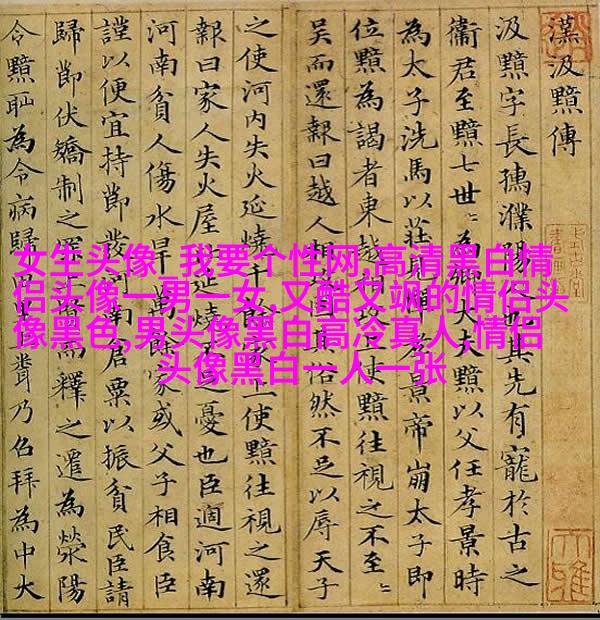 漢汲黯傳
汲黯字長孺濮陽人也其先有寵於古之
衞君至黯七世〻為卿大夫黯以父任孝景時
為太子洗馬以莊見憚孝景帝崩太子即
位黯為謁者東越相攻上使黯往視之不至〻
吳而還報曰越人相攻固其俗然不足以辱天子
之使河内失火延燒千餘家上使黯往視之還
報曰家人失火屋比延燒不足憂也臣過河南
河南貧人傷水旱萬餘家或父子相食臣
謹以便宜持節發河南倉粟以振貧民臣請
歸節伏矯制之罪上賢而釋之遷為滎陽
令黯恥為令病歸田里上聞乃召拜為中大
女生头像_我要个性网,高清黑白情
侣头像一男一女,又酷又飒的情侣头
像黑色,男头像黑白高冷真人,情侣
头像黑白一人一张